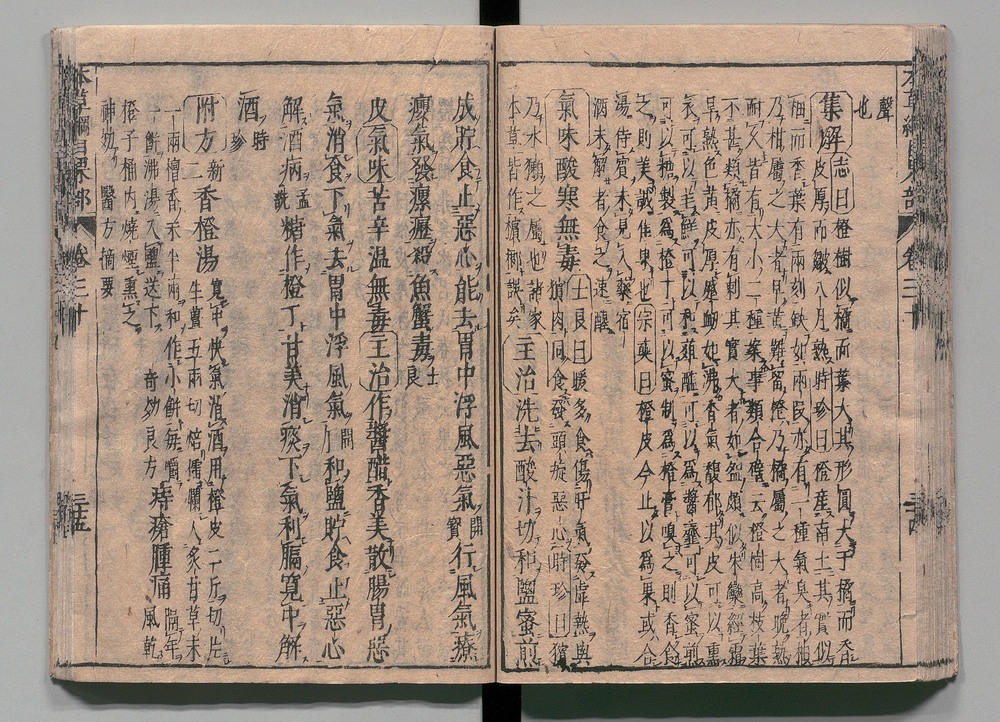 聲也
集解志曰橙樹似橘而葉大其形圓大于橘而香
皮厚而皺八月熟時珍曰橙産南土其實似
柚而香葉有兩刻缺如兩段亦有一種氣臭者柚
乃柑屬之大者早黃難留橙乃橘屬之大者晚熟
耐久皆有大小二種案事類合璧云橙樹高枝葉
不甚類橘亦有刺其實大者如盌頗似朱欒經霜
早熟色黃皮厚蹙衄如沸香氣馥郁其皮可以熏
衣可以芼鮮可以和葅醢可以爲醬虀可以蜜煎
可以糖製爲橙丁可以蜜制爲橙膏嗅之則香食
之則美誠佳果也宗奭曰橙皮今止以爲果或合
湯待賓未見入藥宿
酒未解者食之速醒
氣味酸寒無毒士良曰暖多食傷肝氣發虛熱與
獱肉同食發頭旋惡心時珍曰獱
乃水獺之屬也諸家
本草皆作檳榔誤矣
主治洗去酸汁切和鹽蜜煎
成貯食止惡心能去胃中浮風惡氣開寶行風氣療
癭氣發瘰癧殺魚蟹毒士良
皮氣味苦辛温無毒主治作醬醋香美散腸胃惡
氣消食下氣去胃中浮風氣開寶和鹽貯食止惡心
解酒病孟詵糖作橙丁甘美消痰下氣利膈寬中解
酒時珍
附方新二香橙湯寬中快氣消酒用橙皮二斤切片
生薑五兩切焙擂爛入炙甘草末
一兩檀香末半兩和作小餅每嚼
一餅沸湯入鹽送下奇効良方痔瘡腫痛隔年風乾
橙子桶內燒煙熏之
神効醫方摘要
本草綱目果部
卷三十